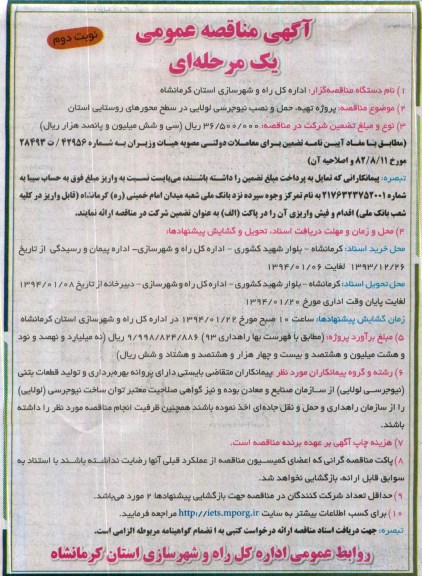 آگهی مناقصه عمومی
نوبت دوم
یک مرحله‌ای
۱) نام دستگاه مناقصه‌گزار: اداره کل راه و شهرسازی استان کرمانشاه
۲) موضوع مناقصه: پروژه تهیه، حمل و نصب نیوجرسی لولایی در سطح محورهای روستایی استان
۳) نوع و مبلغ تضمین شرکت در مناقصه: ۳۶/۵۰۰/۰۰۰ ریال (سی و شش میلیون و پانصد هزار ریال)
(مطابق با مفاد آیین نامه تضمین برای معاملات دولتی مصوبه هیات وزیران به شماره ۴۲۹۵۶ / ت ۲۸۴۹۳
مورخ ۸۲/۸/۱۱ و اصلاحیه آن)
تبصره: پیمانکارانی که تمایل به پرداخت مبلغ تضمین را داشته باشند، می‌بایست نسبت به واریز مبلغ فوق به حساب سیبا به
شماره ۲۱۷۶۳۲۳۷۵۲۰۰۱ به نام تمرکز وجوه سپرده نزد بانک ملی شعبه میدان امام خمینی (ره) کرمانشاه (قابل واریز در کلیه
شعب بانک ملی) اقدام و فیش واریزی آن را در پاکت (الف) به عنوان تضمین شرکت در مناقصه ارائه نمایند.
۴) محل و زمان و مهلت دریافت اسناد، تحویل و گشایش پیشنهادها:
محل خرید اسناد: کرمانشاه - بلوار شهید کشوری - اداره کل راه و شهرسازی- اداره پیمان و رسیدگی از تاریخ
۱۳۹۳/۱۲/۲۶ لغایت ۱۳۹۴/۰۱/۰۶
محل تحویل اسناد: کرمانشاه - بلوار شهید کشوری - اداره کل راه و شهرسازی - دبیرخانه از تاریخ ۱۳۹۴/۰۱/۰۸
لغایت پایان وقت اداری مورخ ۱۳۹۴/۰۱/۲۰
زمان گشایش پیشنهادها: ساعت ۱۰ صبح مورخ ۱۳۹۴/۰۱/۲۲ در اداره کل راه و شهرسازی استان کرمانشاه
۵) مبلغ برآورد پروژه: (مطابق با فهرست بها راهداری ۹۳) ۹/۹۹۸/۸۲۴/۸۸۶ ریال (نه میلیارد و نهصد و نود
و هشت میلیون و هشتصد و بیست و چهار هزار و هشتصد و هشتاد و شش ریال)
۶) رشته و گروه پیمانکاران مورد نظر: پیمانکاران متقاضی بایستی دارای پروانه بهره‌برداری و تولید قطعات بتنی
(نیوجرسی لولایی) از سازمان صنایع و معادن بوده و نیز گواهی صلاحیت معتبر توان ساخت نیوجرسی (لولایی)
را از سازمان راهداری و حمل و نقل جاده‌ای اخذ نموده باشند همچنین ظرفیت انجام مناقصه مورد نظر را داشته
باشند.
۷) هزینه چاپ آگهی بر عهده برنده مناقصه است.
۸) پاکت مناقصه گرانی که اعضای کمیسیون مناقصه از عملکرد قبلی آنها رضایت نداشته باشند با استناد به
سوابق قابل ارائه، بازگشایی نخواهد شد.
۹) حداقل تعداد شرکت کنندگان در مناقصه جهت بازگشایی پیشنهادها ۲ مورد می‌باشد.
۱۰) برای کسب اطلاعات بیشتر به سایت http://iets.mporg.ir مراجعه فرمایید.
تبصره: جهت دریافت اسناد مناقصه ارائه درخواست کتبی به انضمام گواهینامه مربوطه الزامی است.
روابط عمومی اداره کل راه و شهرسازی استان کرمانشاه